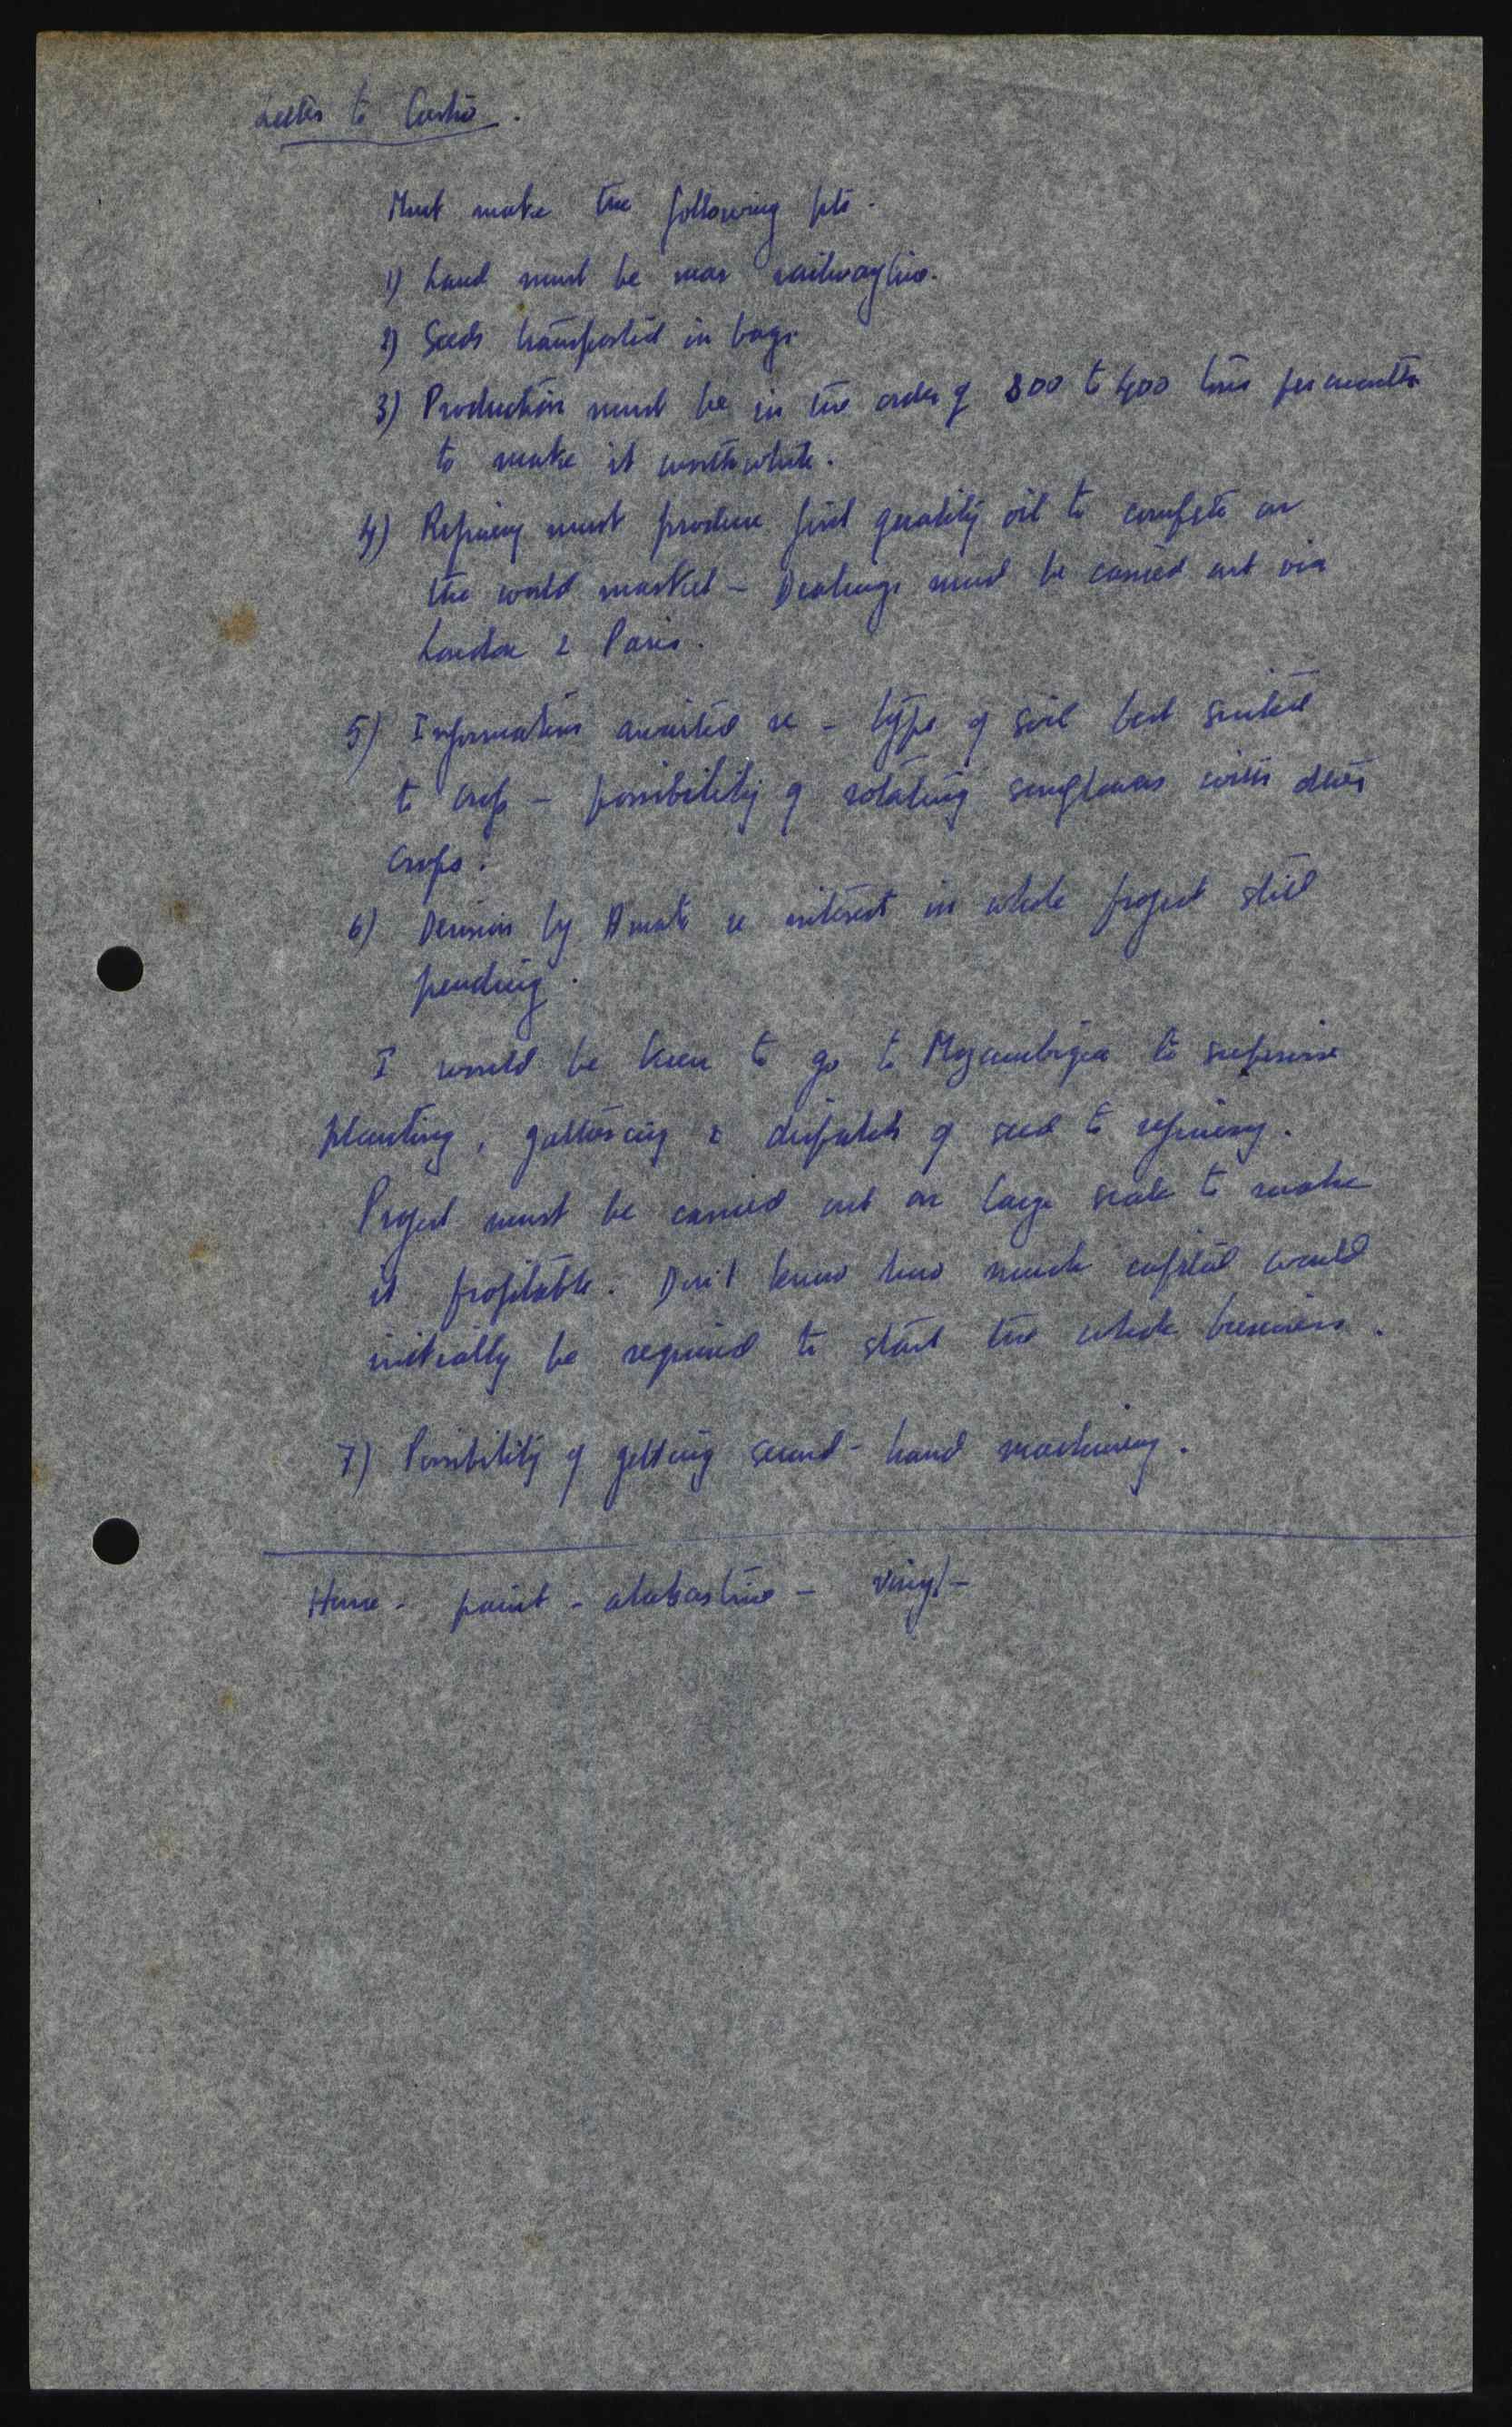 Letter to Castro.
Must make the following pts.
1) Land must be near railway line.
2) Seeds transported in bags.
3) Production must be in the order of 300 to 400 tons per month
to make it worthwhile.
4) Refinery must produce first quality oil to compete on
the world market - Dealings must be carried out via
London & Paris.
5) Information awaited re - type of soil best suited
to crop - possibility of rotating sunflowers with other
crops.
6) Decision by re interest in whole project still
pending.
I would be keen to go to Mozambique to supervise
planting, gathering & dispatch of seed to refinery.
Project must be carried out on large scale to make
it profitable. Don't know how much capital would
initially be required to start the whole business.
7) Possibility of getting second-hand machinery.
paint - alabastine - vinyl -